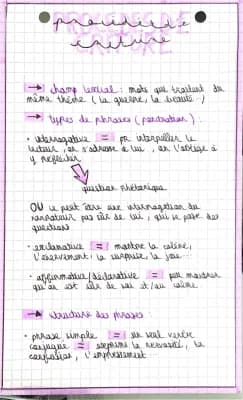 procédé de
écriture
→ champ lexical : mots qui traitent du
même thème (la guerre, la beauté...)
→ types de phrases (ponctuation) :
• interrogative = pr interpeller le
lecteur, on s'adresse à lui, on l'oblige à
y réfléchir
question rhétorique
OU ce peut être une interrogation du
narrateur pas sûr de lui, qui se pose des
questions
• exclamative = montre la colère,
l'énervement, la surprise, la joie...
• affirmative/déclarative = pour montrer
qu'on est sûr de soi et/ou calme.
→ structure des phrases
• phrase simple = un seul verbe
conjugué = exprime la nervosité, la
confusion, l'empressement